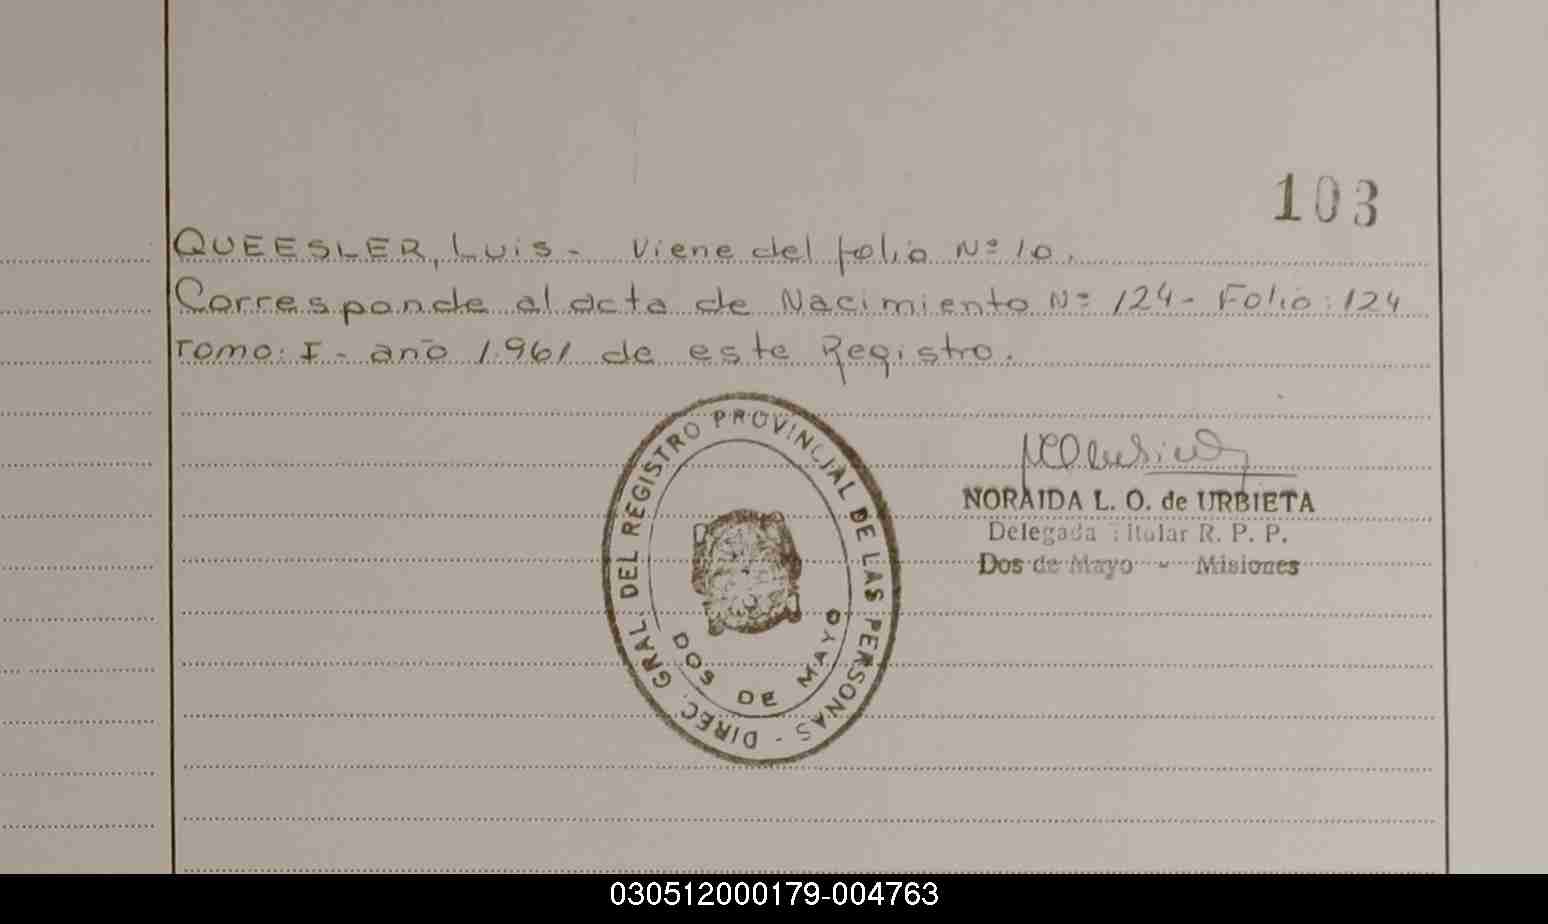 103
QUEESLER, LUIS - Viene del folio Nº 10.
Corresponde al acta de Nacimiento Nº 124 - Folio: 124
Tomo: I - año 1.961 de este Registro.
DIREC. GRAL. DEL REGISTRO PROVINCIAL DE LAS PERSONAS -
DOS DE MAYO
NORAIDA L. O. de URBIETA
Delegada Titular R. P. P.
Dos de Mayo - Misiones
030512000179-004763